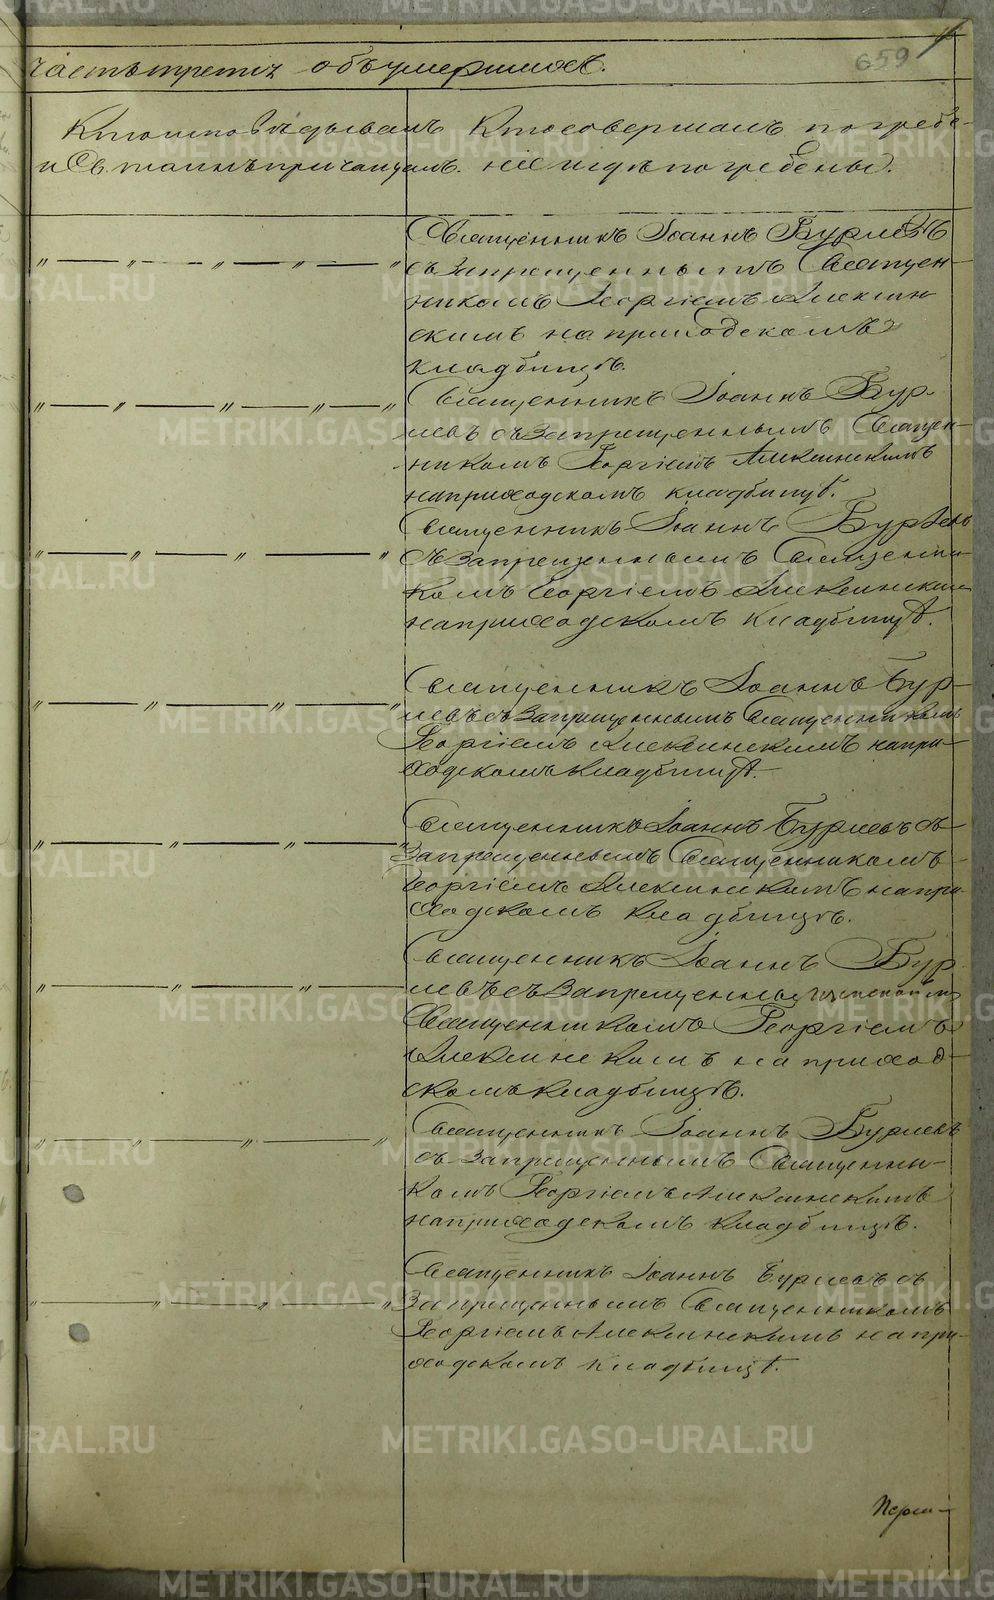 METRIKI.GASO-URAL.RU
659
Часть третья объ умершихъ.
Кто исповѣдывалъ
и Св. таинъ причащалъ.
Кто совершалъ погребе-
ніе и гдѣ погребены.
Священникъ Іоаннъ
съ запрещеннымъ Священ-
никомъ Георгіемъ
скимъ на приходскомъ
кладбищѣ.
Священникъ Іоаннъ Бур-
левъ съ запрещеннымъ Священ-
никомъ Георгіемъ
на приходскомъ кладбищѣ.
Священникъ Іоаннъ
съ запрещеннымъ Священни-
комъ Георгіемъ
на приходскомъ кладбищѣ.
Священникъ Іоаннъ Бур-
левъ съ запрещеннымъ Священникомъ
Георгіемъ на при-
ходскомъ кладбищѣ.
Священникъ Іоаннъ Бурлевъ съ
запрещеннымъ Священникомъ
Георгіемъ на при-
ходскомъ кладбищѣ.
Священникъ Іоаннъ Бур-
левъ съ запрещеннымъ
Священникомъ Георгіемъ
на приход-
скомъ кладбищѣ.
Священникъ Іоаннъ Бурлевъ
съ запрещеннымъ Священни-
комъ Георгіемъ
на приходскомъ кладбищѣ.
Священникъ Іоаннъ Бурлевъ съ
запрещеннымъ Священникомъ
Георгіемъ на при-
ходскомъ кладбищѣ.